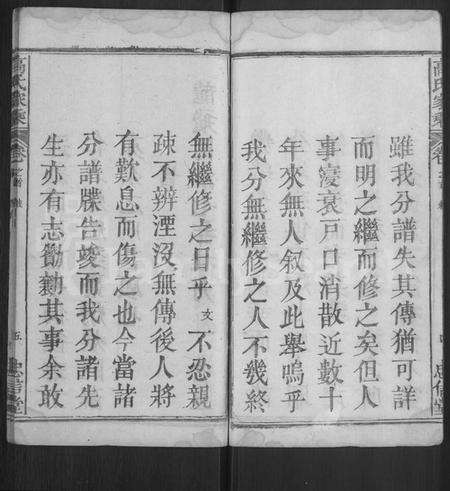 雖我分譜失其傳猶可詳
而明之繼而修之矣但人
事寖衰戶口消散近數十
年來無人叙及此舉嗚乎
我分無繼修之人不幾終
無繼修之日乎文不忍親
疎不辨湮沒無傳後人將
有歎息而傷之也今當諸
分譜牒告竣而我分諸先
生亦有志勷勷其事余敢
高氏家乘
卷
五
忠信堂